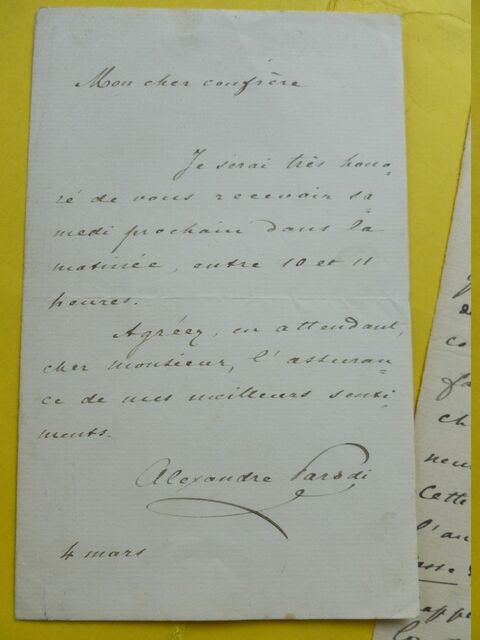 Mon cher confrère
Je serai très hono-
ré de vous recevoir sa-
medi prochain dans la
matinée, entre 10 et 11
heures.
Agréez, en attendant,
cher monsieur, l'assuran-
ce de mes meilleurs senti-
ments.
Alexandre Parodi
4 mars
co
ch
neu
Cette
l'au